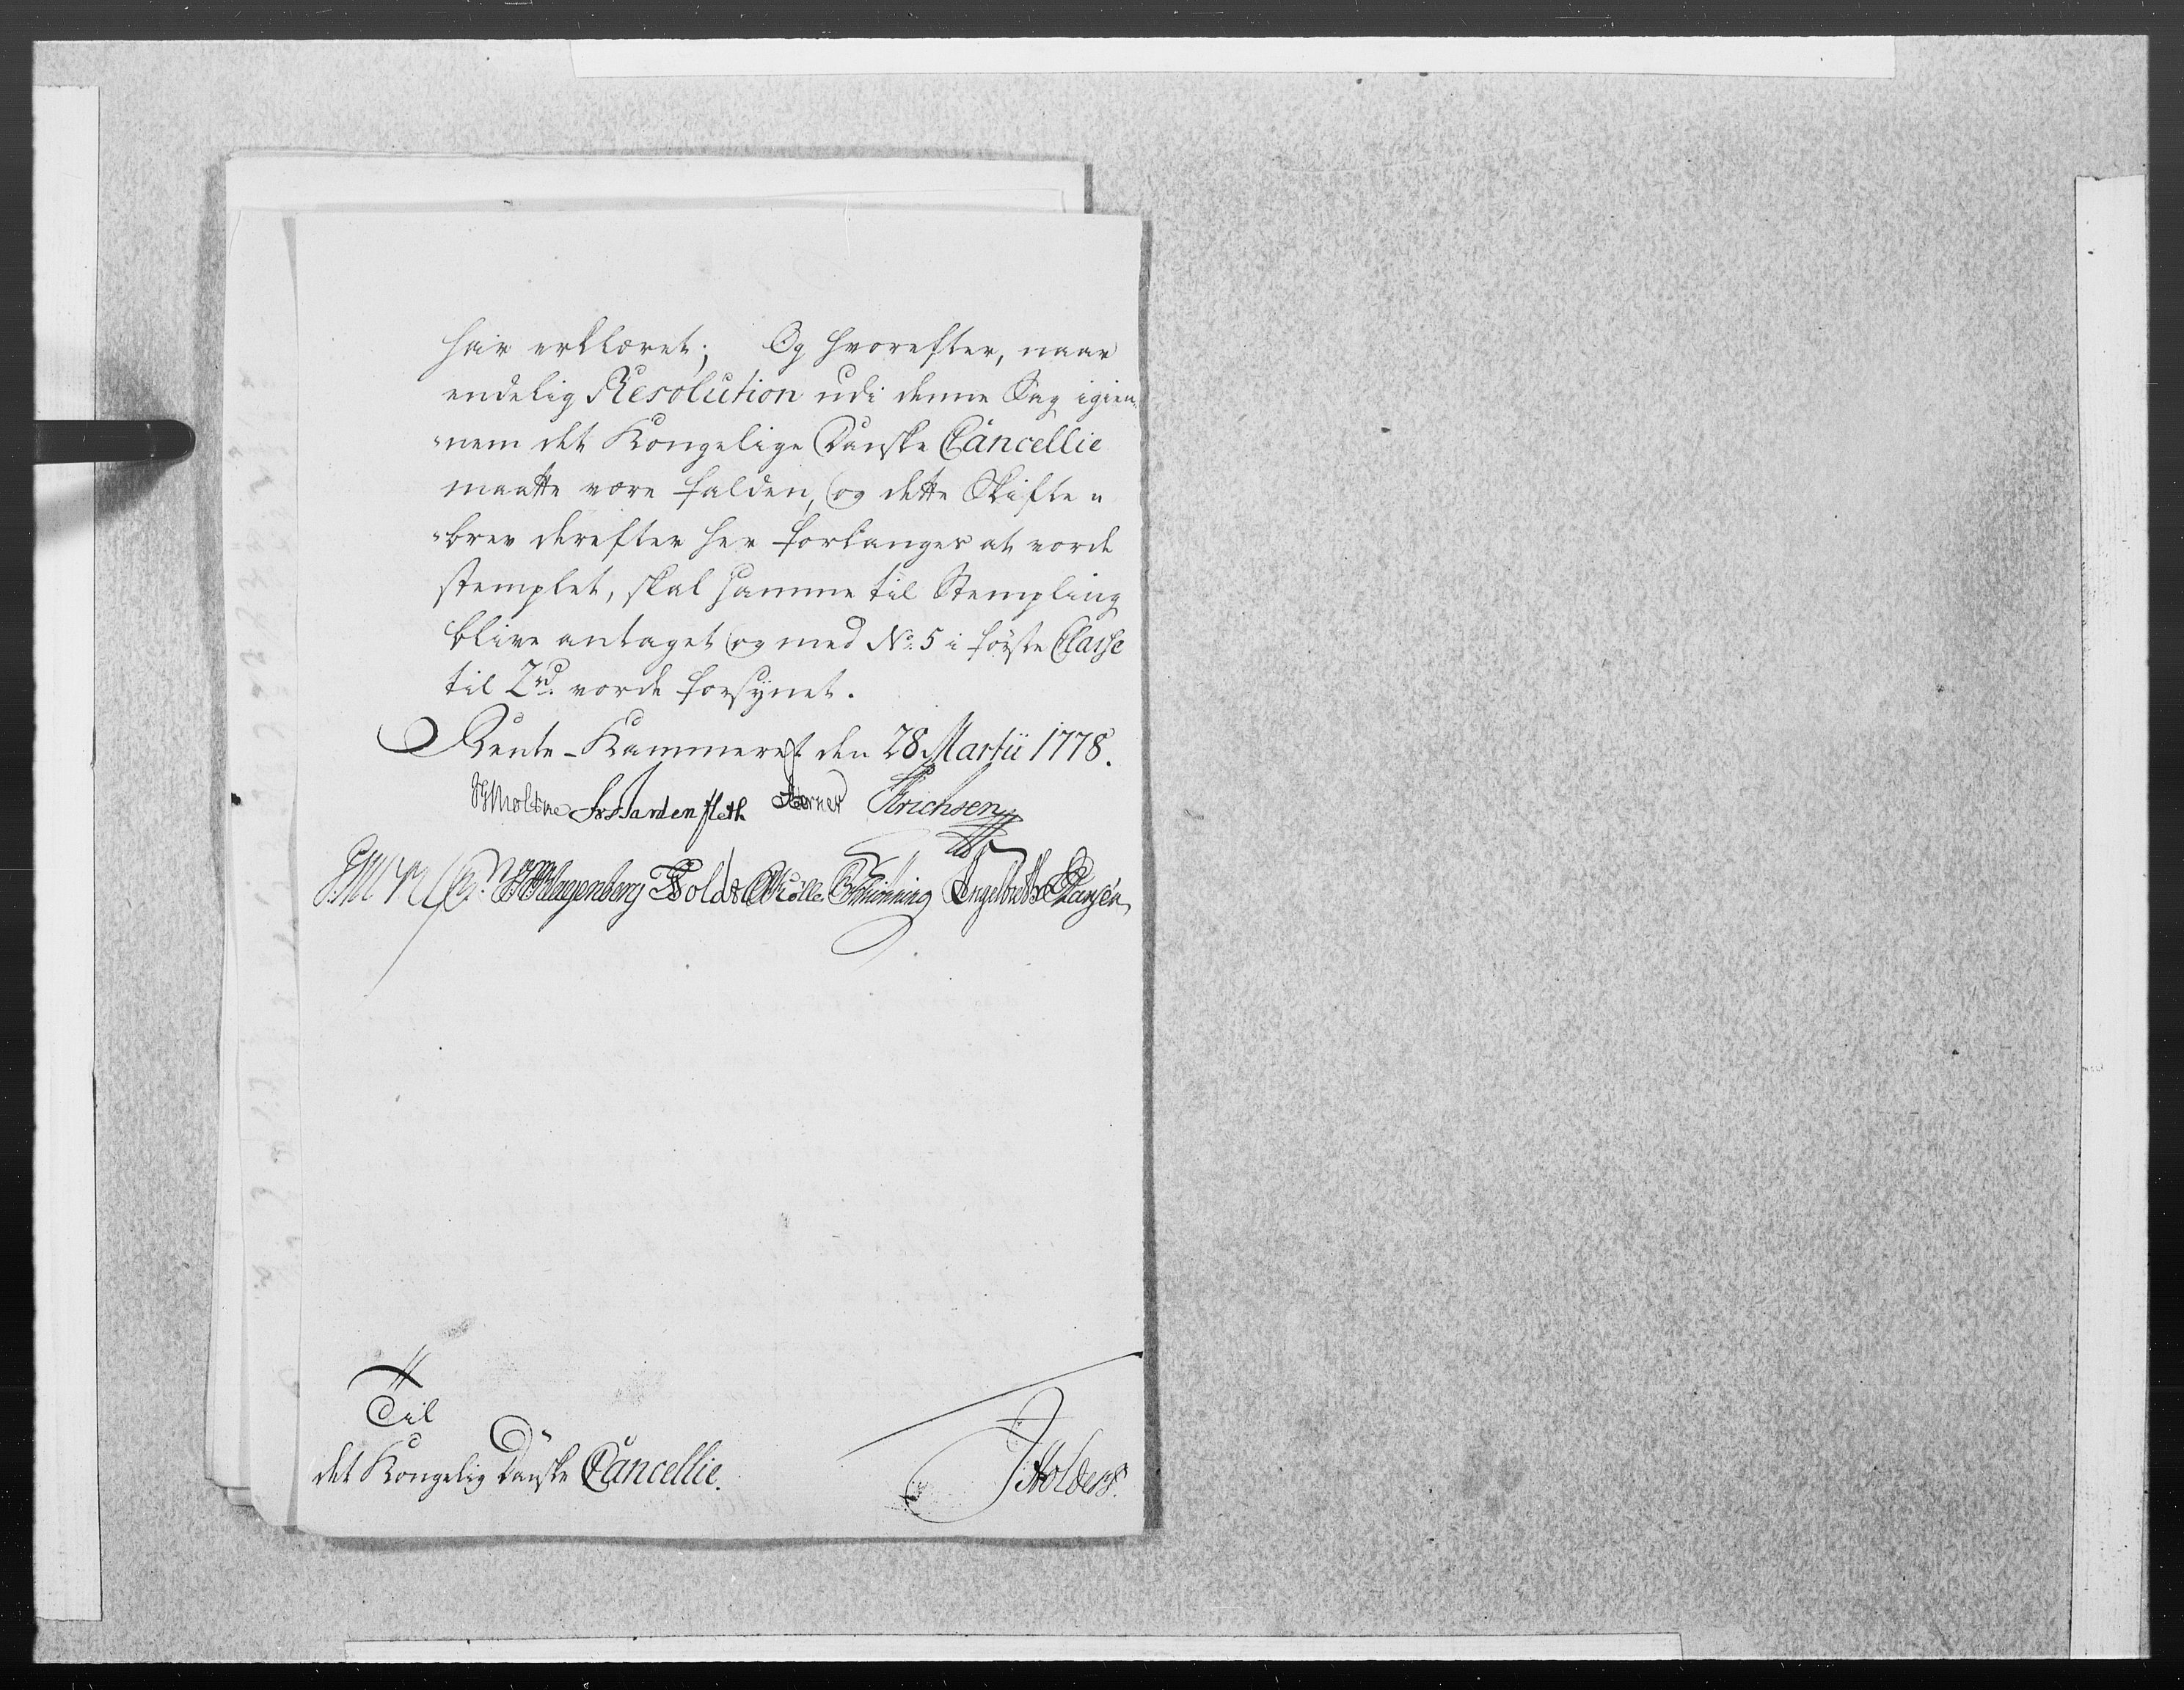 har erklæret; Og hvorefter, naar
endelig Resolution udi denne Sag igien-
-nem det Kongelige Danske Cancellie
maatte være falden, og dette Skifte-
-brev derefter her forlanges at vorde
stemplet, skal samme til Stempling
blive antaget og med No. 5 i første Classe
til 2rd. vorde forsynet.
Rente-Kammeret den 28 Martii 1778.
HMoltke Wardenfleth Erichsen
Klagenberg Holdt Müller Schiønning Engelbreth Hansen
Til
det Kongelig Danske Cancellie.
Holbers.